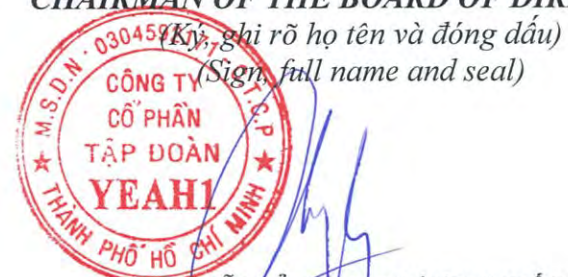 CHAIRMAN OF THE BOARD OF
(Ký, ghi rõ họ tên và đóng dấu)
(Sign, full name and seal)
M.S.D.N
C.T.C.P
CÔNG TY
CỔ PHẦN
TẬP ĐOÀN
YEAH1
THÀNH PHỐ HỒ CHÍ MINH